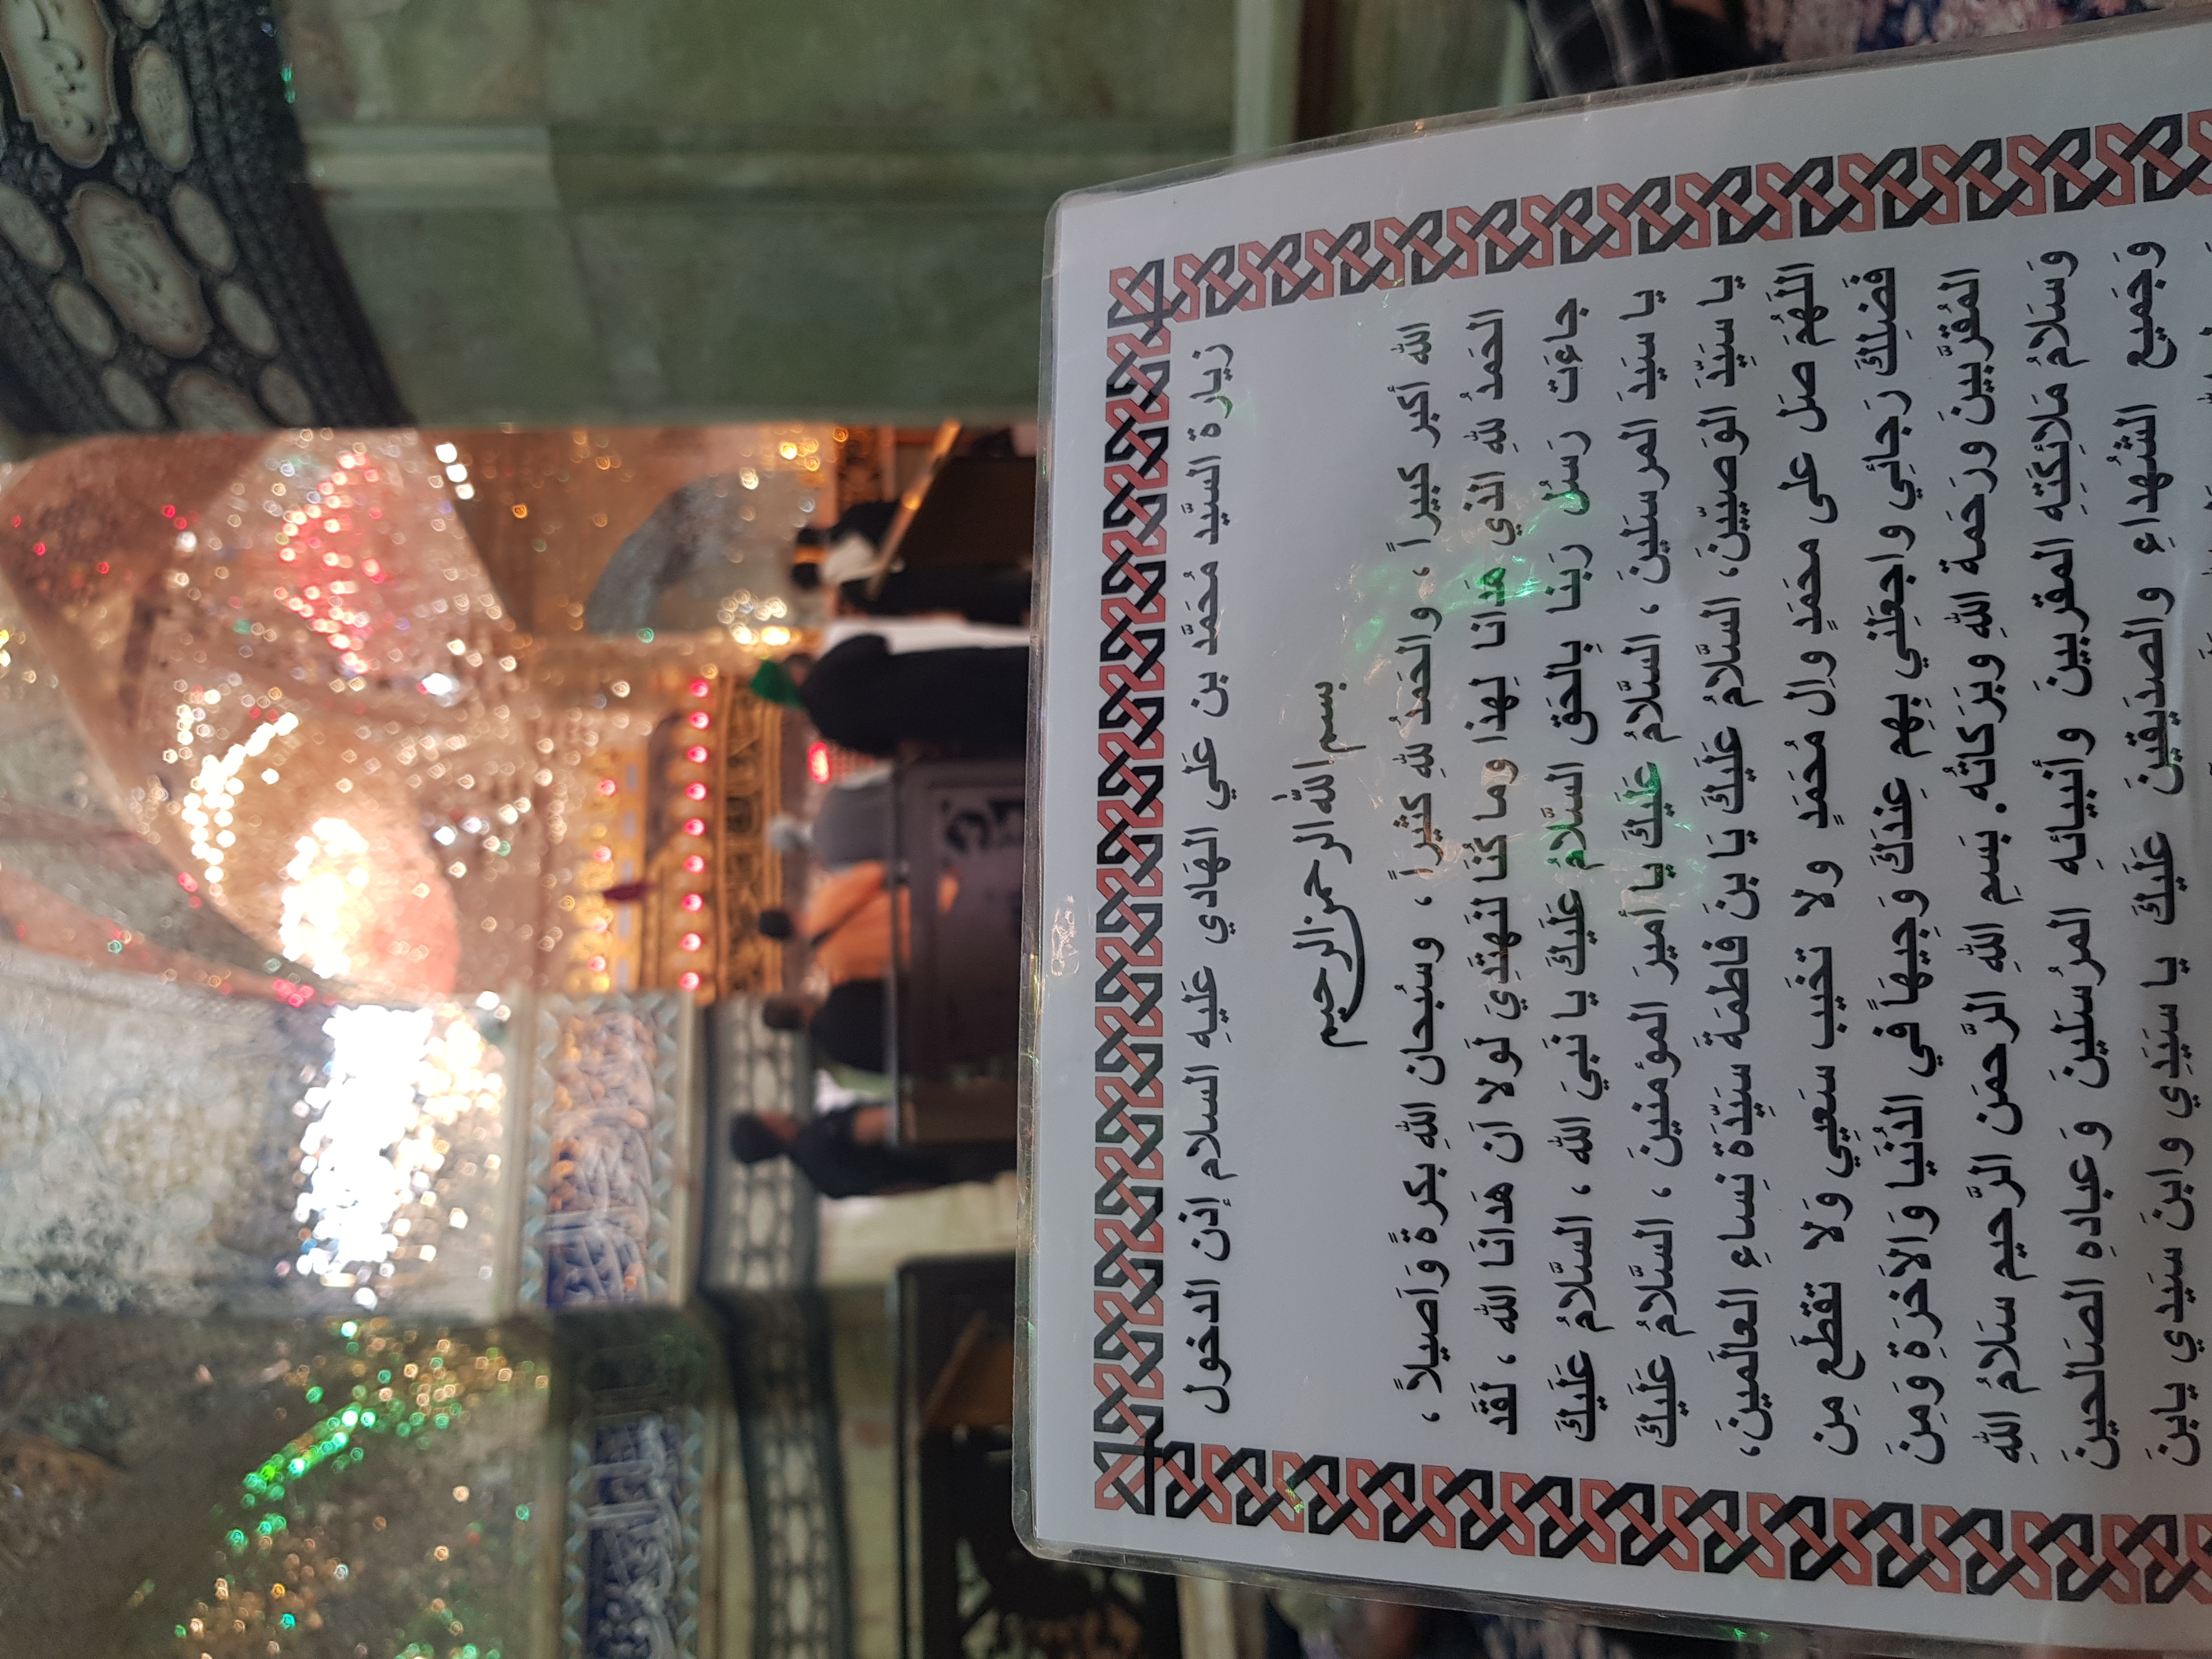 زيارة السيَّد مُحَمَّد بن عَلي الهَادي عَليهِ السلام إذن الدخول
بسم الله الرحمن الرحيم
الله أكبر كبيراً ، والحَمدُ للهِ كثيراً ، وسُبحان اللهِ بكرةً وَاَصيلاً ،
الحَمدُ للهِ الذي هَدانا لِهذا وما كُنّا لنَهتَدِيَ لَولا اَن هَدانَا الله ، لَقَد
جاءَت رَسُلُ رَبنا بِالحَق السَّلامُ عَلَيكَ يا نَبيَ الله ، السَّلامُ عَلَيكَ
يا سَيَدَ المرسَلينَ ، السَّلامُ عَلَيكَ يا أميرَ المؤمنينَ ، السَّلامُ عَلَيكَ
يا سَيِّدَ الوَصيّينَ، السَّلامُ عَلَيكَ يا بنَ فاطمَة سَيِّدَة نِساءِ العالَمينَ،
اللهُمَ صَل على محمَدٍ وال مُحَمَدٍ ولا تخَيب سَعيِي وَلا تقطَع مِن
فَضلِكَ رَجائِي واجعَلني بِهِم عِندَكَ وَجِيهَاً في الدُنيا وَالاَخرَةِ وَمِنَ
المُقرَّبينَ وَرَحمَة اللهِ وبَرَكاتُه. بسَمِ اللهِ الرَّحمَن الرَّحيم سَلامُ اللهِ
وَسَلامُ مَلائكَتِه المقربينَ وأنبيائهِ المرُسَلينَ وَعبادهِ الصَالحينَ
وَجَميع الشُهداءِ والصدَيقينَ عَلَيكَ يا سَيَدِي وابنَ سَيَدي يابنَ